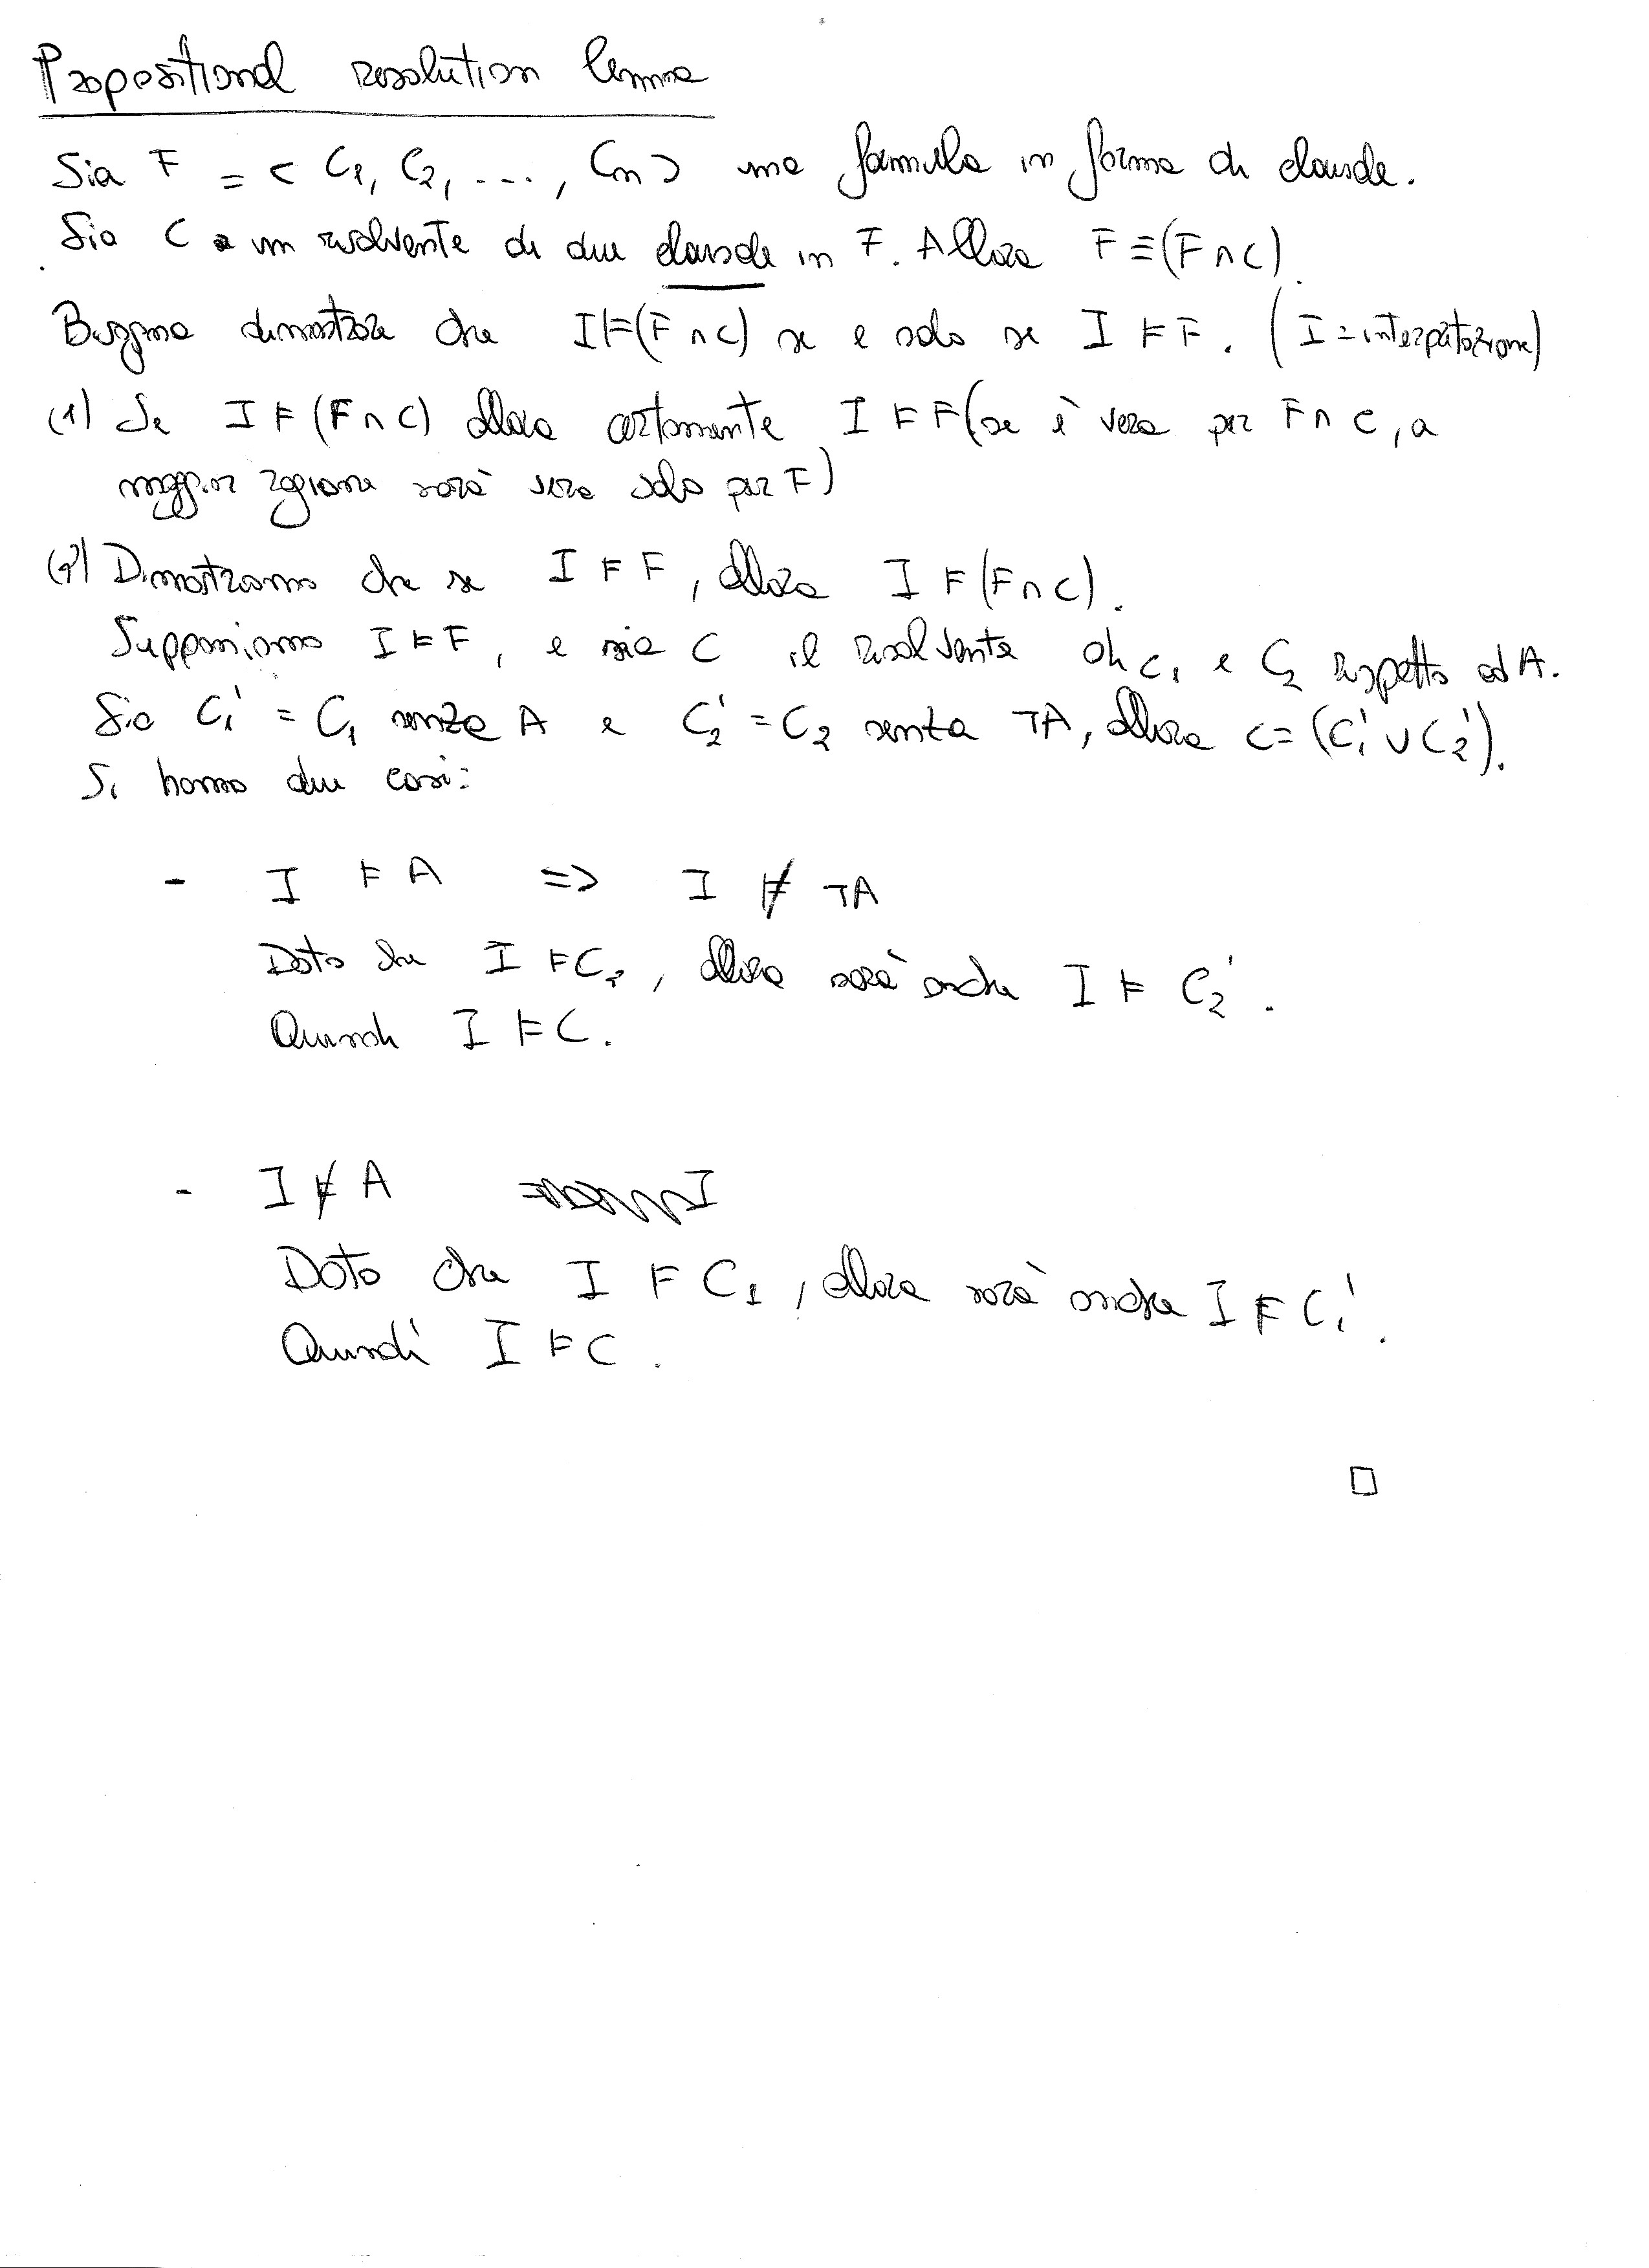 Propositional resolution lemma
Sia F = < C1, C2, ..., Cn > una formula in forma di clausole.
Sia C un risolvente di due clausole in F. Allora F ≡ (F ∩ C).
Bisogna dimostrare che I ⊨ (F ∩ C) se e solo se I ⊨ F. (I = interpretazione)
(1) Se I ⊨ (F ∩ C) allora certamente I ⊨ F (se è vera per F ∩ C, a
maggior ragione sarà vera solo per F)
(2) Dimostriamo che se I ⊨ F, allora I ⊨ (F ∩ C).
Supponiamo I ⊨ F, e sia C il risolvente di C1 e C2 rispetto ad A.
Sia C1' = C1 senza A e C2' = C2 senza ¬A, allora C = (C1' ∪ C2').
Si hanno due casi:
- I ⊨ A => I ⊭ ¬A
Dato che I ⊨ C2, allora sarà anche I ⊨ C2'.
Quindi I ⊨ C.
- I ⊭ A
Dato che I ⊨ C1, allora sarà anche I ⊨ C1'.
Quindi I ⊨ C.
□